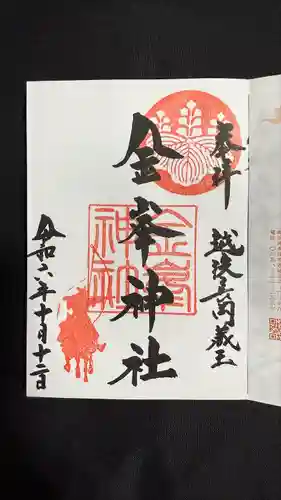 奉拝
越後長岡蔵王
金峯神社
金峯神社
令和六年十月十二日